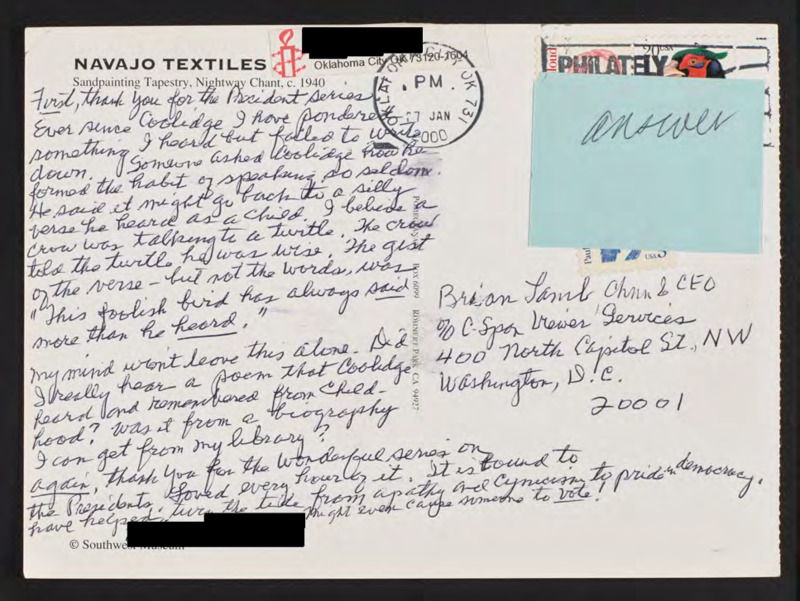 NAVAJO TEXTILES
Sandpainting Tapestry, Nightway Chant, c. 1940
Oklahoma City OK 73120-1604
OK 731
PM
7 JAN
2000
20 USA
PHILATELY
answer
First, thank you for the President series
Ever since Coolidge I have pondered
something I heard but failed to write
down. Someone asked Coolidge how he
formed the habit of speaking so seldom.
He said it might go back to a silly
verse he heard as a child. I believe a
crow was talking to a turtle. The crow
told the turtle he was wise. The gist
of the verse - but not the words, was
"This foolish bird has always said
more than he heard."
my mind won't leave this alone. Did
I really hear a poem that Coolidge
heard and remembered from child-
hood? Was it from a biography
I can get from my library?
again, thank you for the wonderful series on
the Presidents. Loved every hour of it. It is bound to
have helped turn the tide from apathy and cynicism to pride in democracy.
might even cause someone to vote!
© Southwest Museum
BOX 6099 ROHNERT PARK, CA 94927
USA
Brian Lamb Chmn & CEO
% C-Span Viewer Services
400 North Capitol St., NW
Washington, D.C.
20001